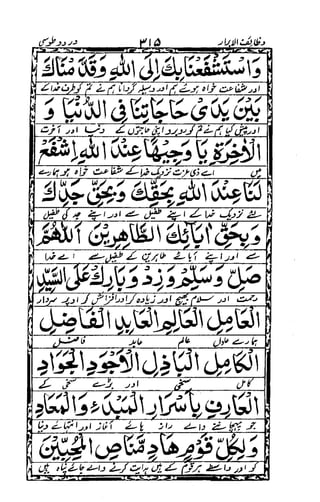 وظائف الابرار ۳۱۵ درود طوسی
وَاسْتَشْفَعْنَا بِكَ اِلَى اللّٰهِ وَقَدَّمْنَاكَ
اور شفاعت خواہ ہوئے ہم اور وسیلہ گردانا ہم نے تم کو طرف خدا کے
بَيْنَ يَدَىْ حَاجَاتِنَا فِى الدُّنْيَا وَ
اور پیش کیا ہم نے تم کو روبرو اپنی حاجتوں کے دنیا اور آخرت
الْاٰخِرَةِ يَا وَجِيْهًا عِنْدَ اللّٰهِ اِشْفَعْ
میں اے ذی عزت نزدیک خدا کے شفاعت خواہ ہو ہمارے
لَنَا عِنْدَ اللّٰهِ بِحَقِّكَ وَبِحَقِّ جَدِّكَ
لئے نزدیک خدا کے اپنے طفیل سے اور اپنے جد کی طفیل
وَبِحَقِّ اٰبَائِكَ الطَّاهِرِيْنَ اَللّٰهُمَّ
سے اور اپنے آبائے طاہرین کے طفیل سے اے خدا
صَلِّ وَسَلِّمْ وَزِدْ وَبَارِكْ عَلَى السَّيِّدِ
رحمت اور سلام بھیج اور زیادہ کر اور افزائش کر اوپر سردار
الْعَامِلِ الْعَالِمِ الْعَابِدِ الْفَاضِلِ
ہمارے عادل عالم عابد فاضل
الْكَامِلِ الْبَاذِلِ الْاَجْوَدِ الْجَوَادِ
کامل سخی اور بڑے سخی کے
الْعَارِفِ بِاَسْرَارِ الْمَبْدَءِ وَالْمَعَادِ
جو پہچاننے والے راز ہائے آغاز اور انتہائے دنیا
وَلِكُلِّ قَوْمٍ هَادٍ مَّنَاصِ الْمُحِبِّيْنَ
کو اور واسطے ہر قوم کے ہیں ہدایت کرنے والے جائے پناہ ہیں